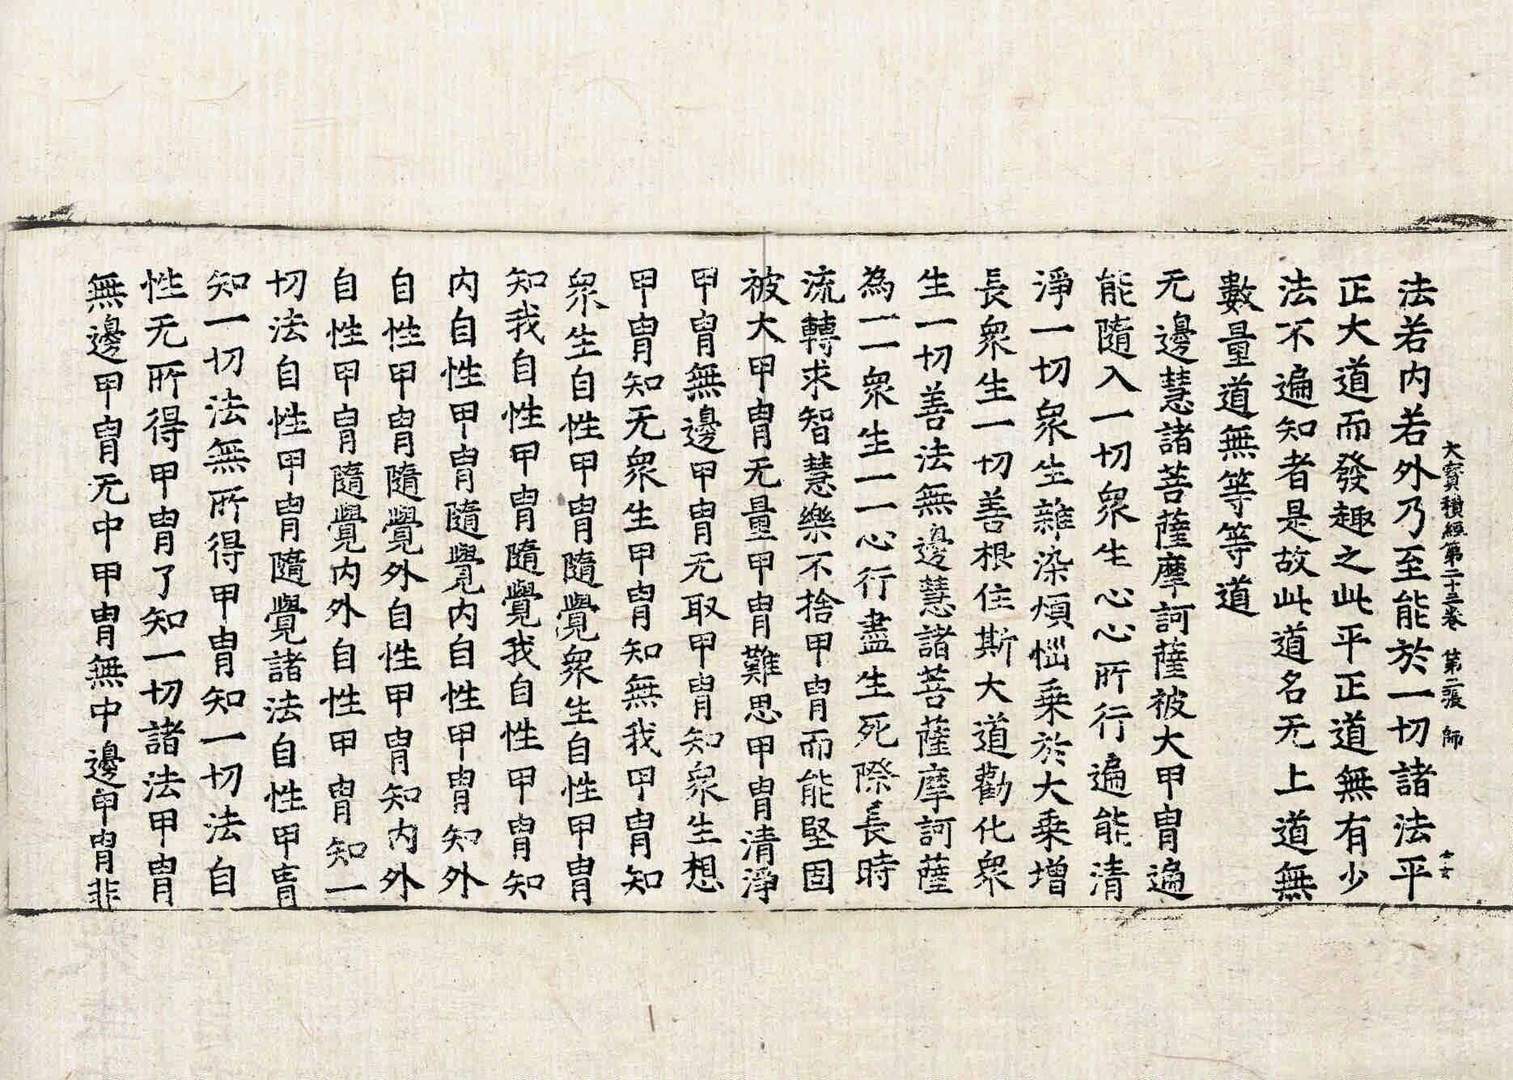 大寶積經第二十三卷 第二張 師
法若内若外乃至能於一切諸法平
正大道而發趣之此平正道無有少
法不遍知者是故此道名无上道無
數量道無等等道
无邊慧諸菩薩摩訶薩被大甲冑遍
能隨入一切衆生心心所行遍能清
淨一切衆生雜染煩惱乗於大乗增
長衆生一切善根住斯大道勸化衆
生一切善法無邊慧諸菩薩摩訶薩
為一一衆生一一心行盡生死際長時
流轉求智慧樂不捨甲冑而能堅固
被大甲冑无量甲冑難思甲冑清淨
甲冑無邊甲冑无取甲冑知衆生想
甲冑知无衆生甲冑知無我甲冑知
衆生自性甲冑隨覺衆生自性甲冑
知我自性甲冑隨覺我自性甲冑知
内自性甲冑隨覺内自性甲冑知外
自性甲冑隨覺外自性甲冑知内外
自性甲冑隨覺内外自性甲冑知一
切法自性甲冑隨覺諸法自性甲冑
知一切法無所得甲冑知一切法自
性无所得甲冑了知一切諸法甲冑
無邊甲冑无中甲冑無中邊甲冑非